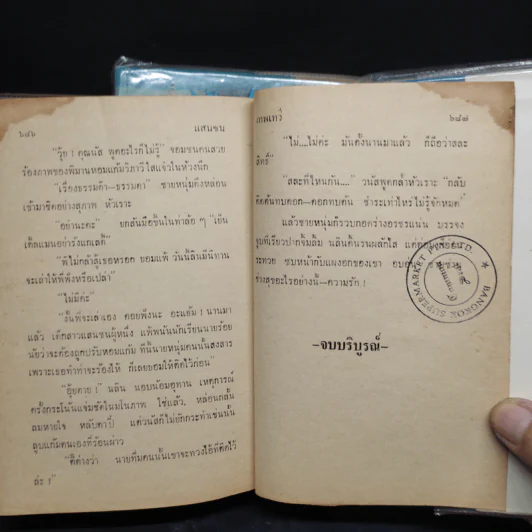 ๖๔๖ แสนซน
"วุ้ย! คุณนัส พูดอะไรก็ไม่รู้" จอมซนคนสวย
ร้องภาพของพิมานหอมแก้มวิภาวีใสแจ๋วในห้วงนึก
"เรื่องธรรมด๊า—ธรรมดา" ชายหนุ่มดึงหล่อน
เข้ามาชิดอย่างสุภาพ หัวเราะ
"อย่านะคะ" ยกสันมือขึ้นในท่าล้อ ๆ "เป็น
เต็ลแมนอย่ารังแกเด้"
"พี่ไม่กล้าสู้เธอหรอก ยอมแพ้ วันนี้ลินมีนิทาน
จะเล่าให้พี่ฟังหรือเปล่า"
"ไม่มีค่ะ"
"งั้นพี่จะเล่าเอง คอยฟังนะ อะแฮ้ม! นานมา
แล้ว เด็กสาวแสนซนผู้หนึ่ง แพ้พนันนักเรียนนายร้อย
นัยว่าจะต้องถูกปรับหอมแก้ม ทีนี้นายหนุ่มคนนั้นสงสาร
เพราะเธอทำท่าจะร้องไห้ ก็เลยยอมให้ติดไว้ก่อน"
"อุ้ยตาย!" นลิน นอบน้อมอุทาน เหตุการณ์
ครั้งกระโน้นแจ่มชัดในมโนภาพ ใช่แล้ว, หล่อนกลั้น
ลมหายใจ หลับตาปี๋ แต่วนัสก็ไม่ยักกระทำเช่นนั้น
ลูบแก้มตนเองที่ร้อนผ่าว
"คิดูว่า นายทึ่มคนนั้นเขาจะทวงไอ้ที่ติดไว้
ล่ะ!"
เทพเทวี ๖๔๗
"ไม่....ไม่ค่ะ มันตั้งนานมาแล้ว ก็ถือว่าสละ
สิทธิ์"
"สละที่ไหนกัน...." วนัสพูดกลั้วหัวเราะ "กลับ
คิดต้นทบดอก—ดอกทบต้น ชำระเท่าไหร่ไม่รู้จักหมด"
แล้วชายหนุ่มก็รวบกอดร่างอรชรแน่น บรรจง
จูบที่เรียวปากจิ้มลิ้ม นลินดิ้นรนผลักไส
ซบหน้ากับแผงอกของเขา
ช่างสุขอะไรอย่างนั้น—ความรัก!
—จบบริบูรณ์—
BANGKOK SUPERMARKET LTD